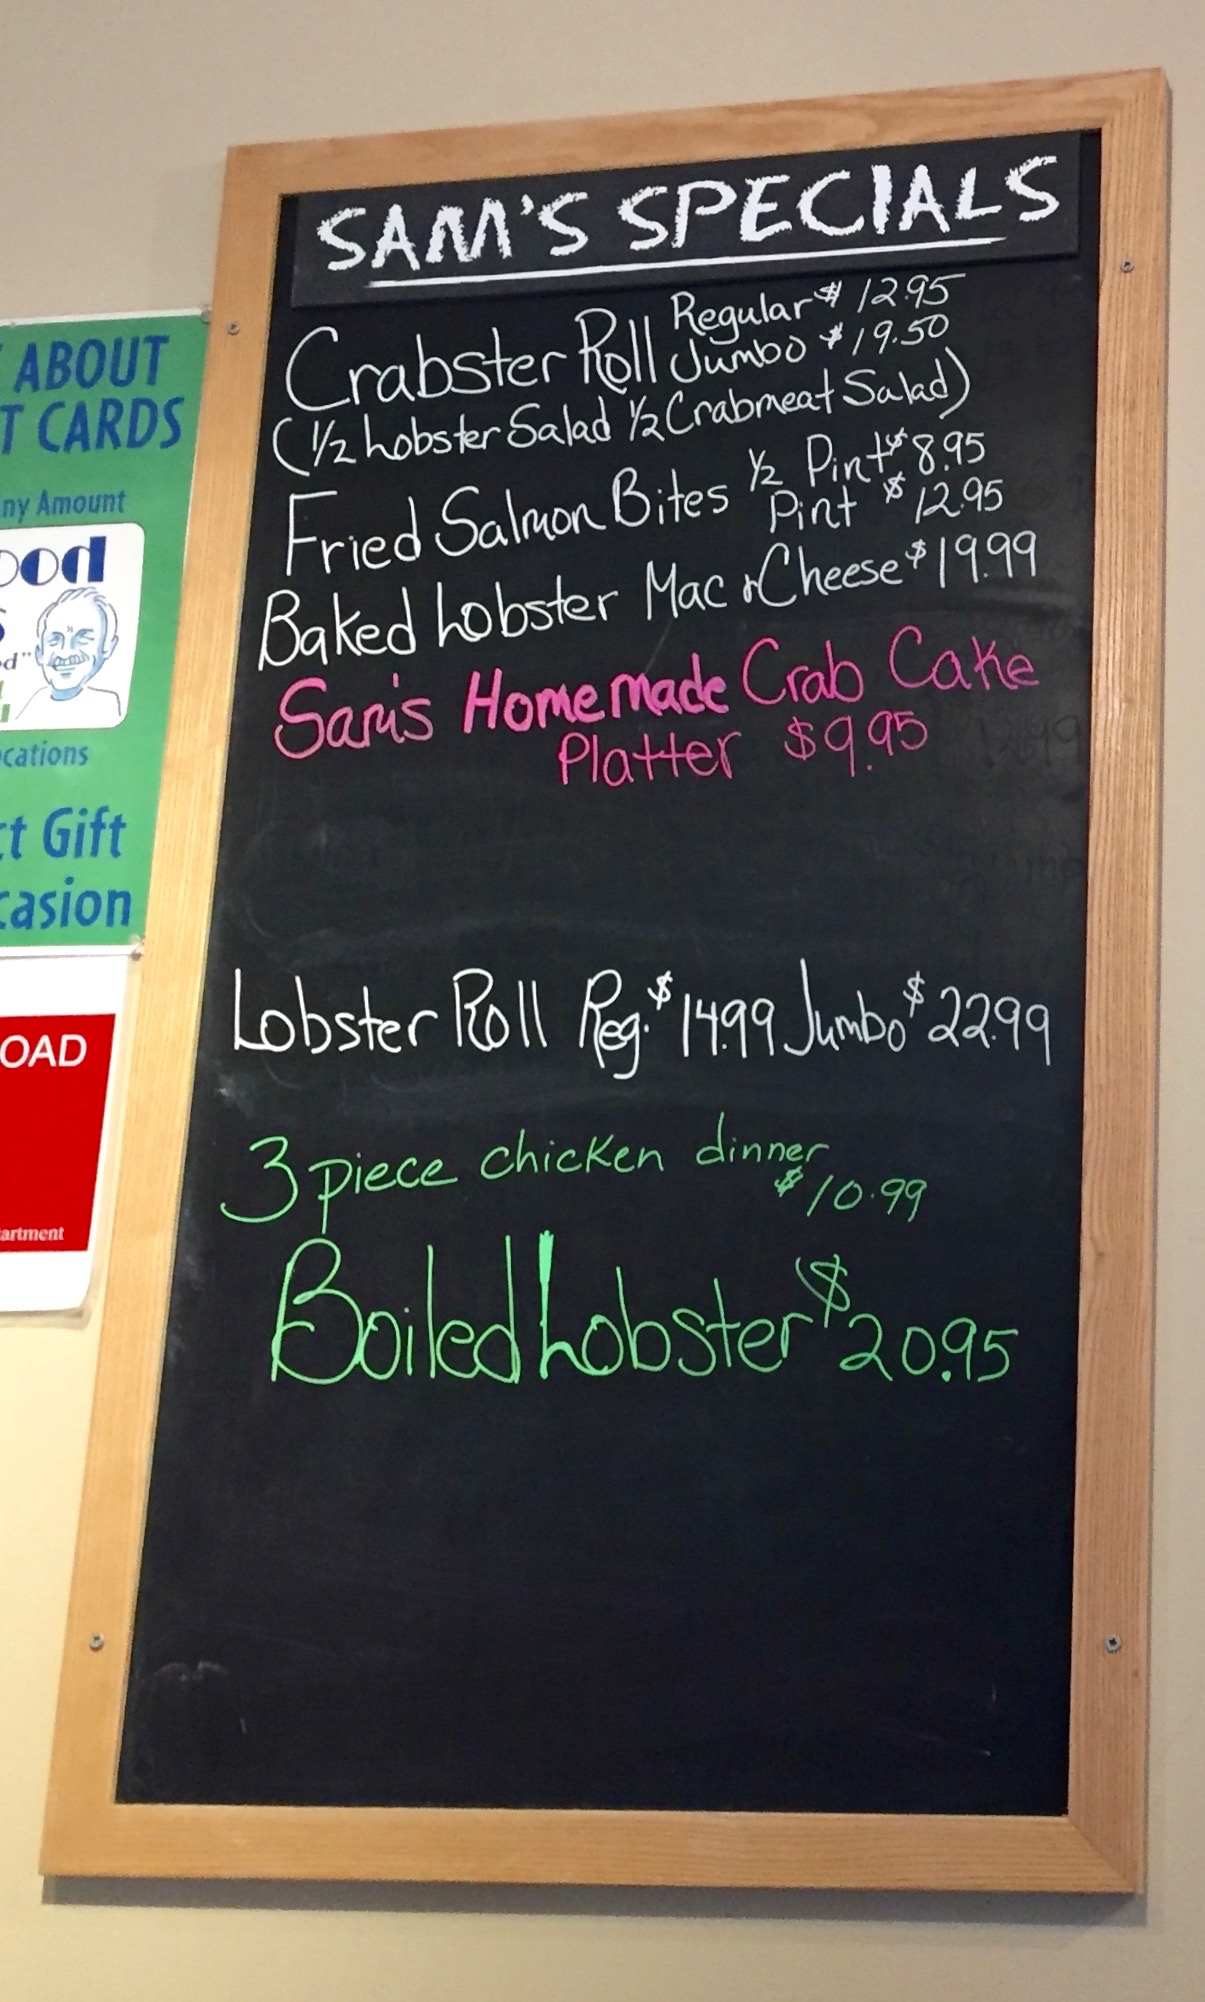 SAM'S SPECIALS
Crabster Roll Regular $12.95
Jumbo $19.50
(½ Lobster Salad ½ Crabmeat Salad)
Fried Salmon Bites ½ Pint $8.95
Pint $12.95
Baked Lobster Mac & Cheese $19.99
Sam's Homemade Crab Cake
Platter $9.95
Lobster Roll Reg. $14.99 Jumbo $22.99
3 piece chicken dinner
$10.99
Boiled Lobster $20.95
ABOUT
T CARDS
ny Amount
ood
S
d"
cations
ct Gift
casion
OAD
artment